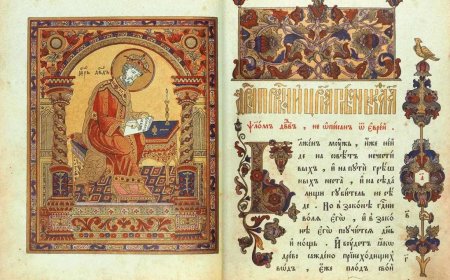 ѱалом двв҃, не ѡписан ѡ еврей.
Блажен мꙋжъ, иже не и
де на совѣтъ нечести
выхъ, и на пꙋти грѣш
ныхъ не ста, и на сѣда
лищи гꙋбитель не сѣ
де. Но в законѣ гд҃ни
волѧ егѡ, и в зак
онѣ егѡ поꙋчитсѧ день
и нощь. И бꙋдетъ ꙗкѡ
древо саждено при исходищих
вод, еже плод свой